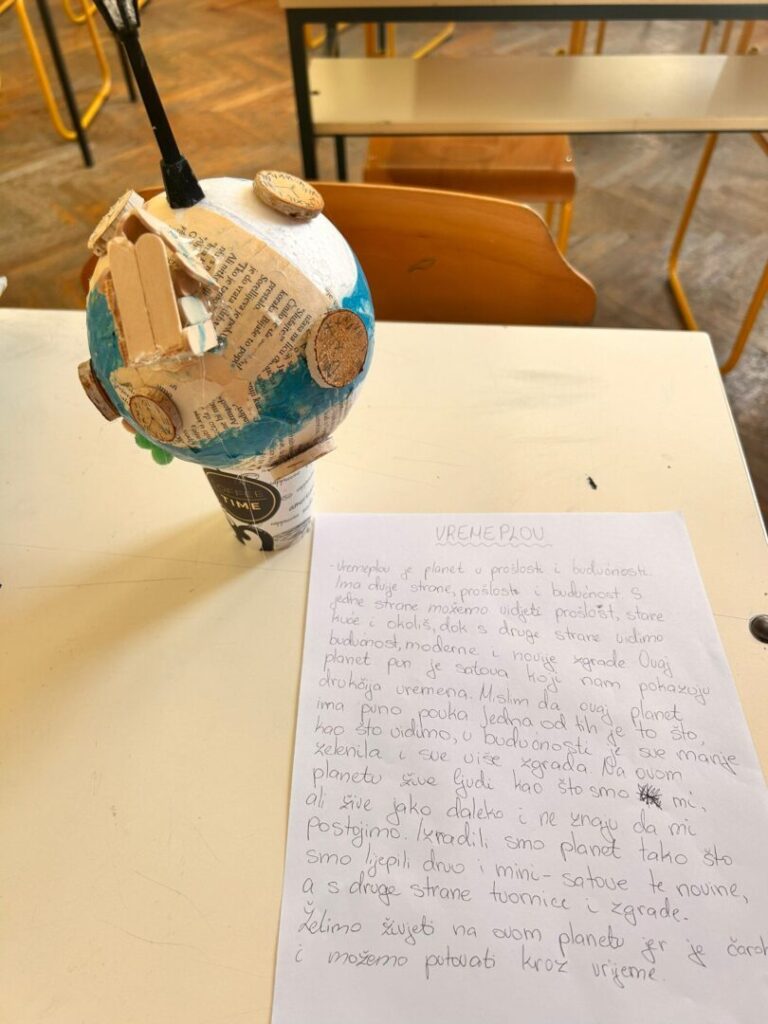 TIME
VREMEPLOV
- Vremeplov je planet u prošlosti i budućnosti.
Ima dvije strane, prošlost i budućnost S
jedne strane možemo vidjeti prošlost, stare
kuće i okoliš, dok s druge strane vidimo
budućnost, moderne i novije zgrade Ovaj
planet pun je satova koji nam pokazuju
drukčija vremena. Mislim da ovaj planet
ima puno pouka Jedna od tih je to što,
kao što vidimo, u budućnosti je sve manje
zelenila i sve više zgrada Na ovom
planetu žive ljudi kao što smo mi,
ali žive jako daleko i ne znaju da mi
postojimo. Izradili smo planet tako što
smo lijepili drvo i mini-satove te novine,
a s druge strane tvornice i zgrade.
Želimo živjeti na ovom planetu jer je
i možemo putovati kroz vrijeme.